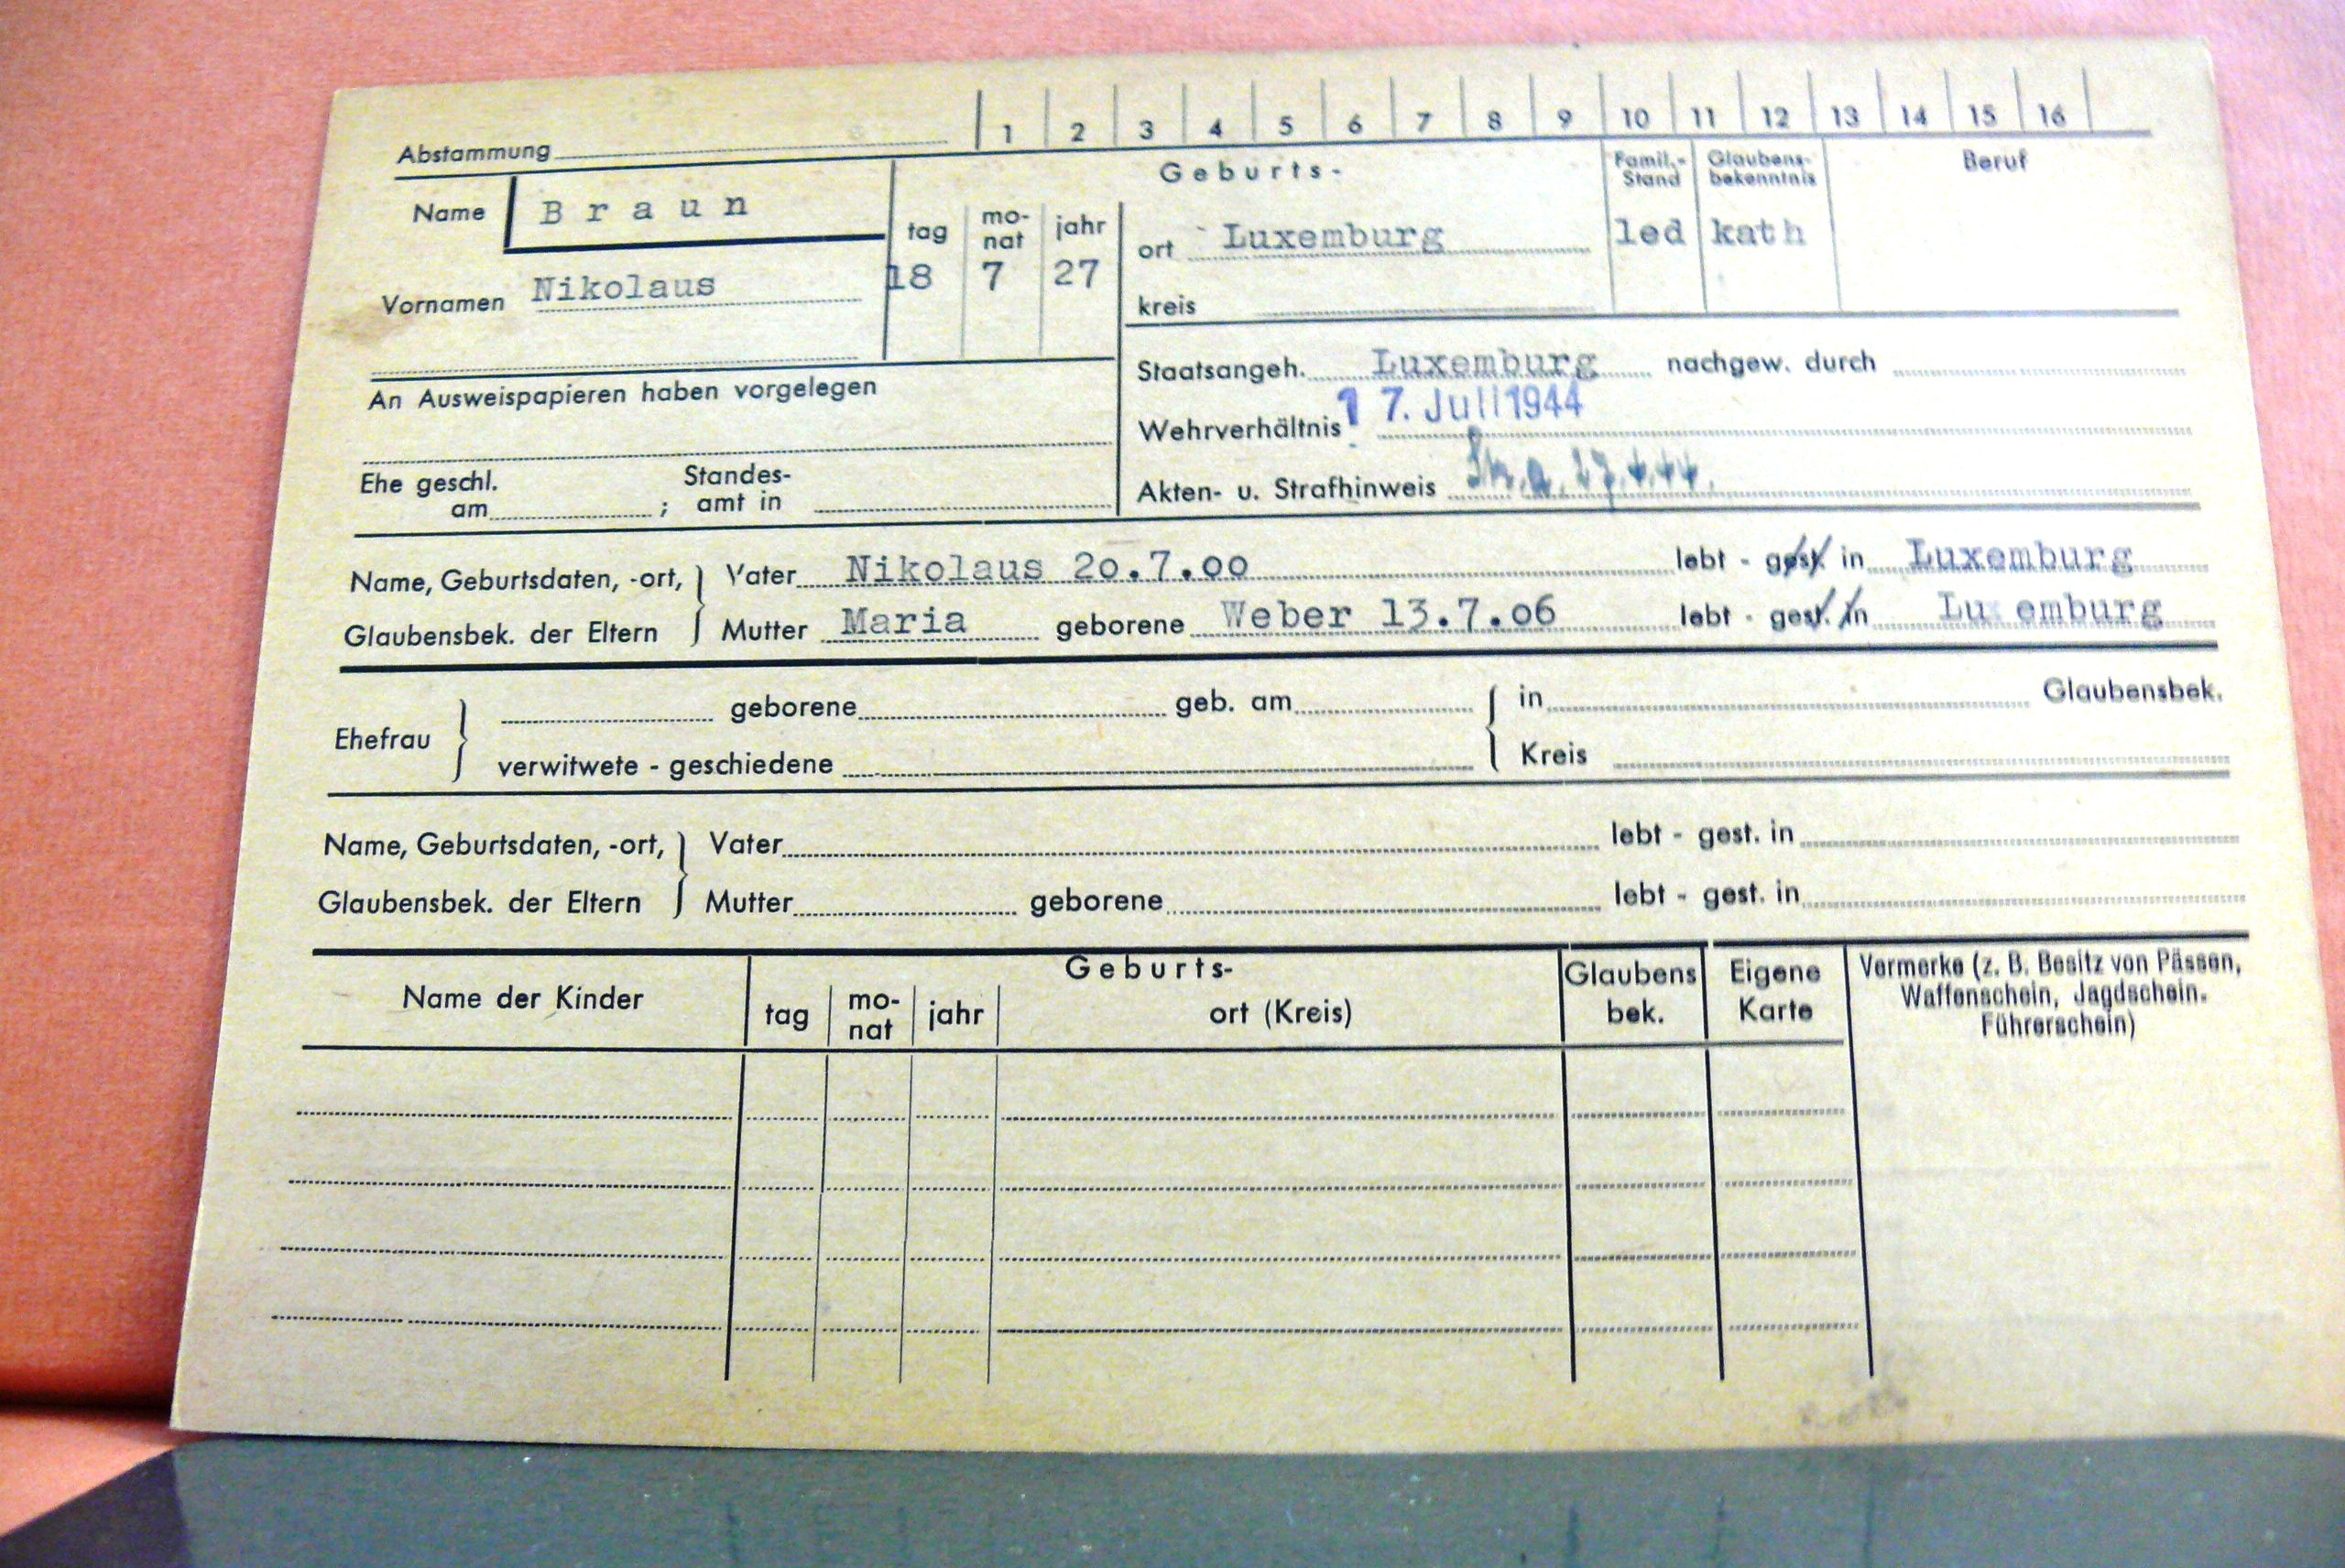 Abstammung 1 2 3 4 5 6 7 8 9 10 11 12 13 14 15 16
Name Braun
Geburts-
Famil.-Stand Glaubens-bekenntnis Beruf
tag mo-nat jahr ort Luxemburg led kath
Vornamen Nikolaus 18 7 27
kreis
An Ausweispapieren haben vorgelegen
Staatsangeh. Luxemburg nachgew. durch
Wehrverhältnis 17. Juli 1944
Ehe geschl. am ; Standes-amt in
Akten- u. Strafhinweis
Name, Geburtsdaten, -ort, Vater Nikolaus 20.7.00 lebt - gest. in Luxemburg
Glaubensbek. der Eltern Mutter Maria geborene Weber 13.7.06 lebt - gest. in Lu emburg
Ehefrau geborene geb. am in Glaubensbek.
verwitwete - geschiedene Kreis
Name, Geburtsdaten, -ort, Vater lebt - gest. in
Glaubensbek. der Eltern Mutter geborene lebt - gest. in
Name der Kinder Geburts- Glaubens bek. Eigene Karte Vermerke (z. B. Besitz von Pässen,
Waffenschein, Jagdschein.
Führerschein)
tag mo-nat jahr ort (Kreis)